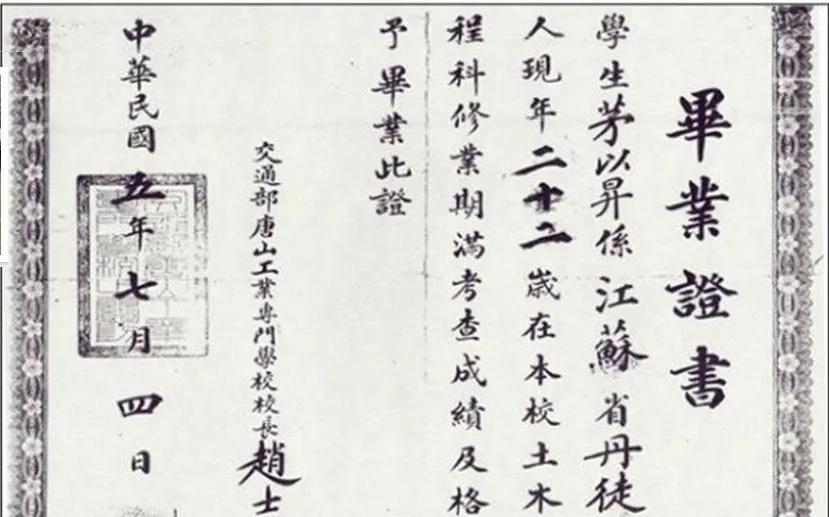 畢業證書
學生茅以昇係江蘇省丹徒
人現年二十二歲在本校土木
程科修業期滿考查成績及格
予畢業此證
交通部唐山工業専門學校校長趙士
中華民國五年七月四日